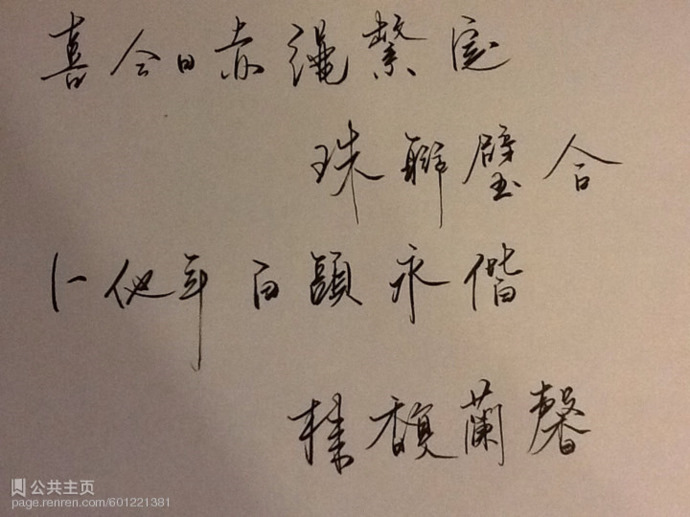 喜今日赤繩繫定
珠聯璧合
卜他年白頭永偕
桂馥蘭馨
公共主页
page.renren.com/601221381